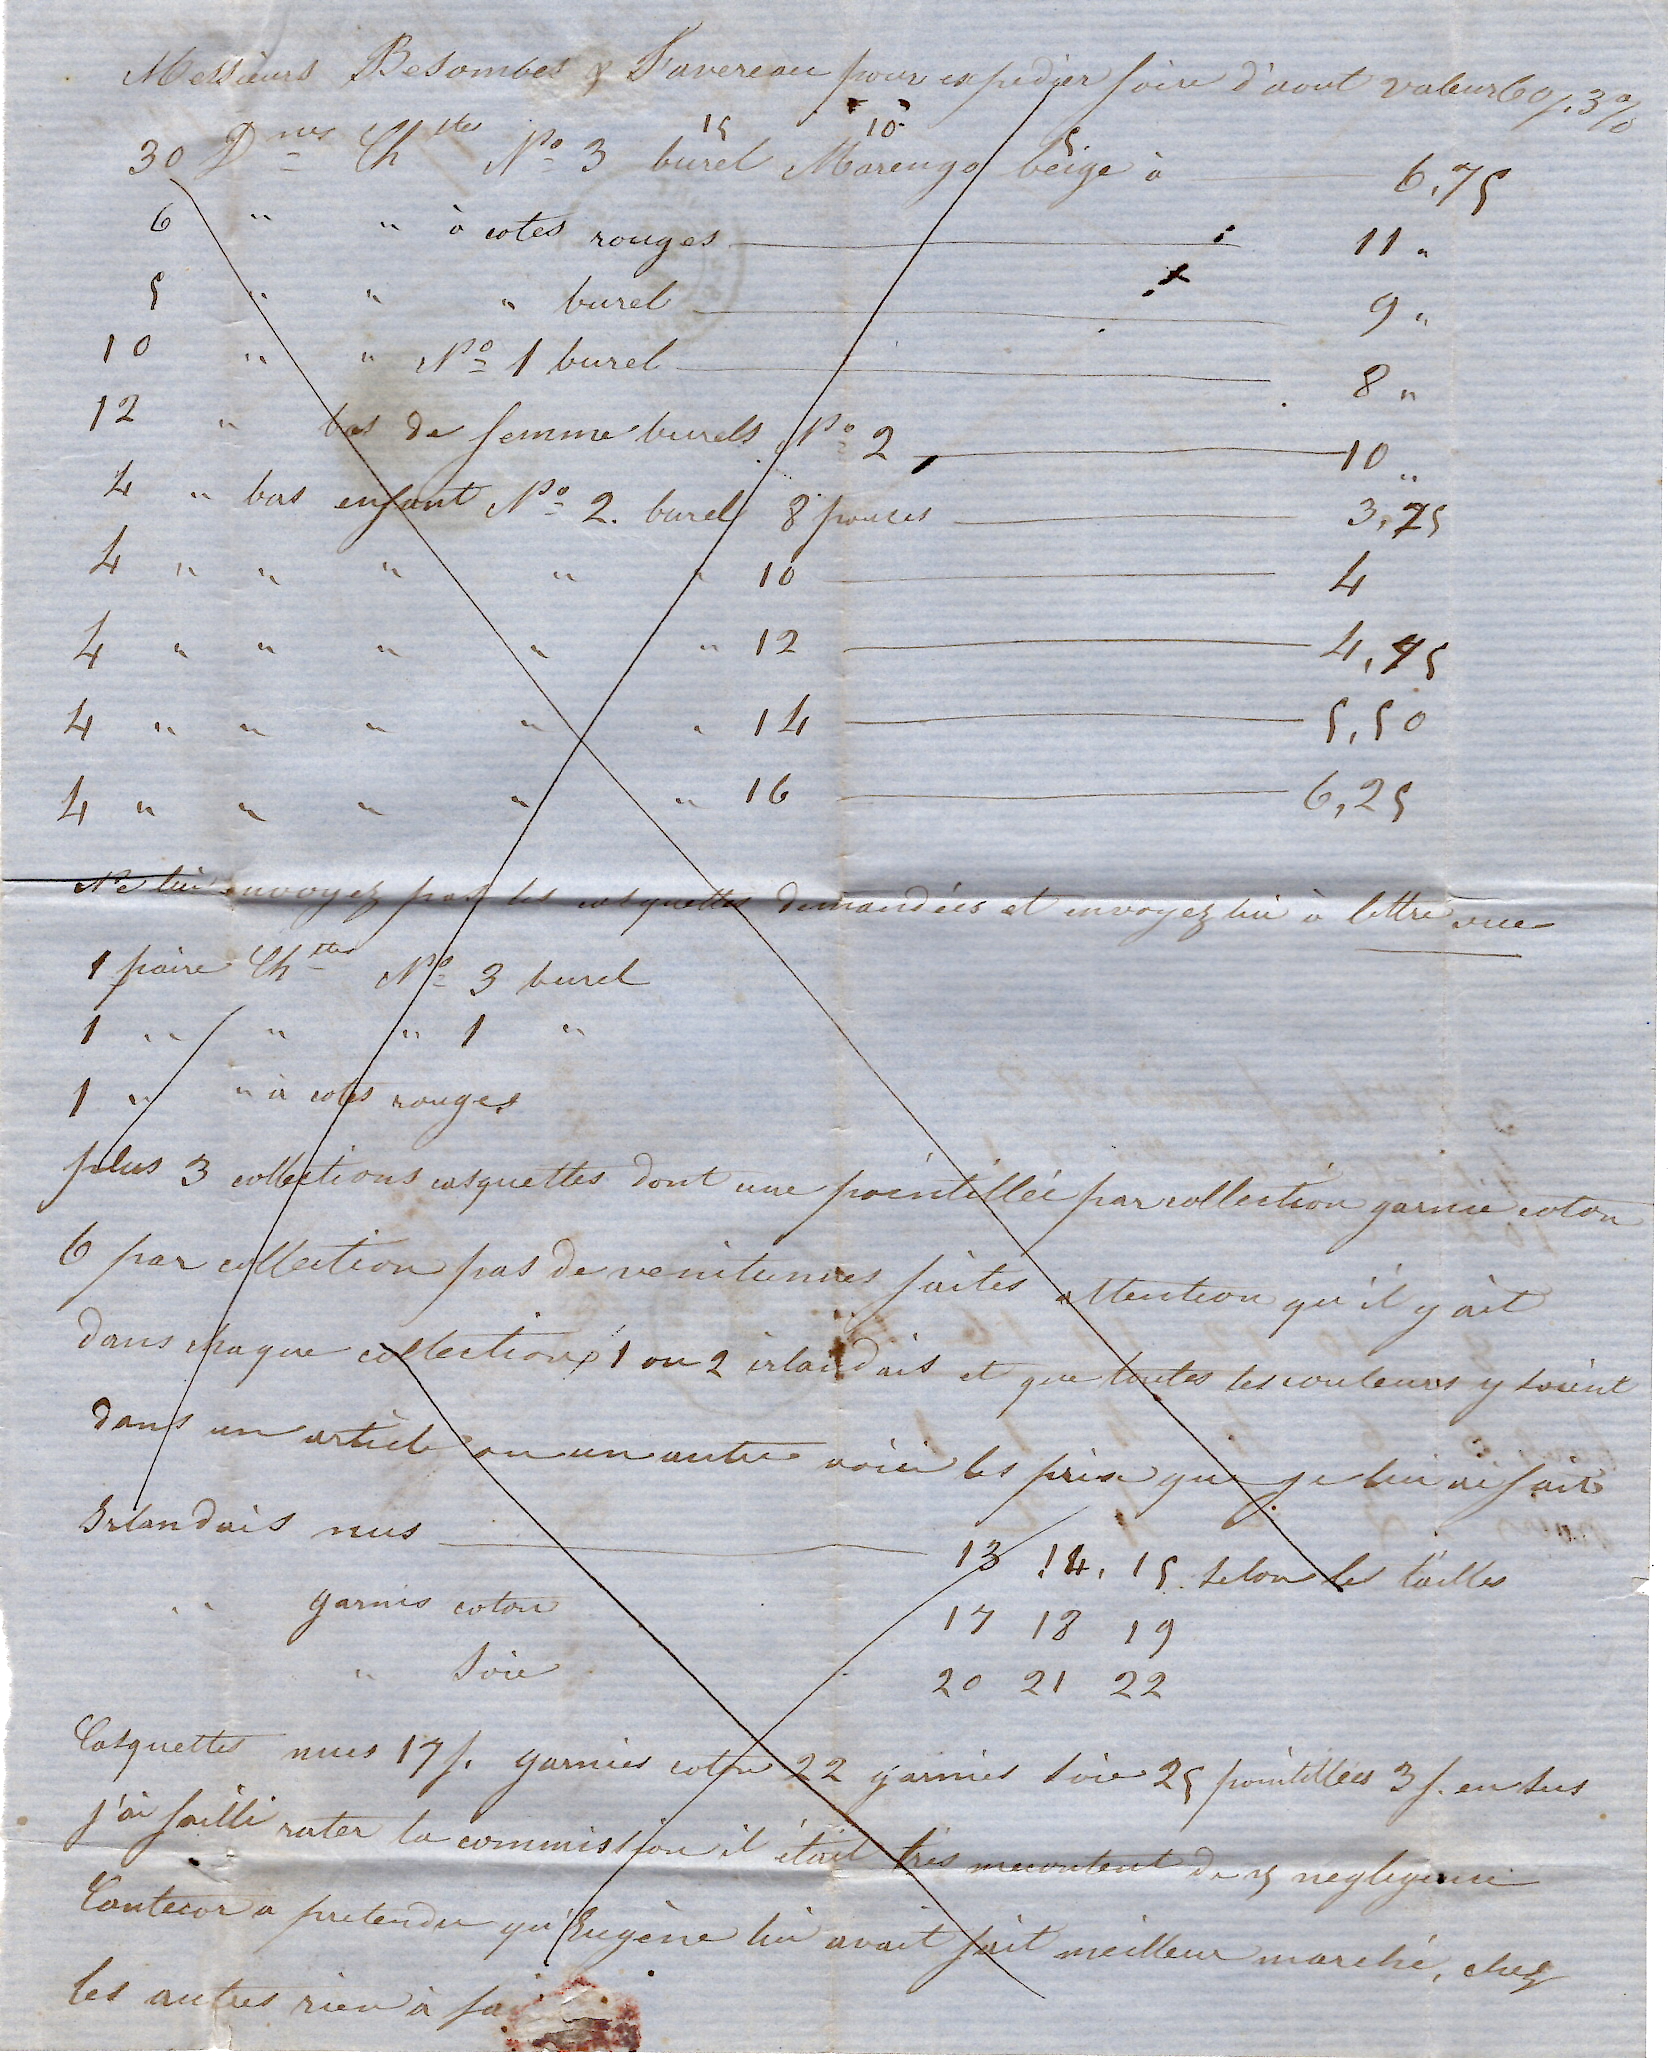 Messieurs Besombes & Favereau pour expedier foire d'aout valeur 60 j. 3 %
15 10 5
30 Dnes Chttes No 3 burel Marengo beige à 6,75
6 " " à cotes rouges 11 "
5 " " " burel 9 "
10 " " No 1 burel 8 "
12 " bas de femme burels No 2 10 "
4 " bas enfant No 2. burel 8 pouces 3,75
4 " " " " " 10 4
4 " " " " " 12 4,75
4 " " " " " 14 5,50
4 " " " " " 16 6,25
Ne lui envoyez pas les casquettes demandées et envoyez lui à lettre vue
1 paire Chttes No 3 burel
1 " " " 1 "
1 " " à cotes rouges
plus 3 collections casquettes dont une pointillée par collection garnie coton
6 par collection pas de venitiennes faites attention qu'il y ait
dans chaque collection 1 ou 2 irlandais et que toutes les couleurs y soient
dans un article ou un autre voici les prix que je lui ai fait
Irlandais nus 13 14, 15 selon les tailles
" garnis coton 17 18 19
" soie 20 21 22
Casquettes nues 17 f. garnies coton 22 garnies soie 25 pointillées 3 f. en sus
j'ai failli rater la commission il était très mecontent de negligence
Cantecor a pretendu qu'Eugène lui avait fait meilleur marché, chez
les autres rien à